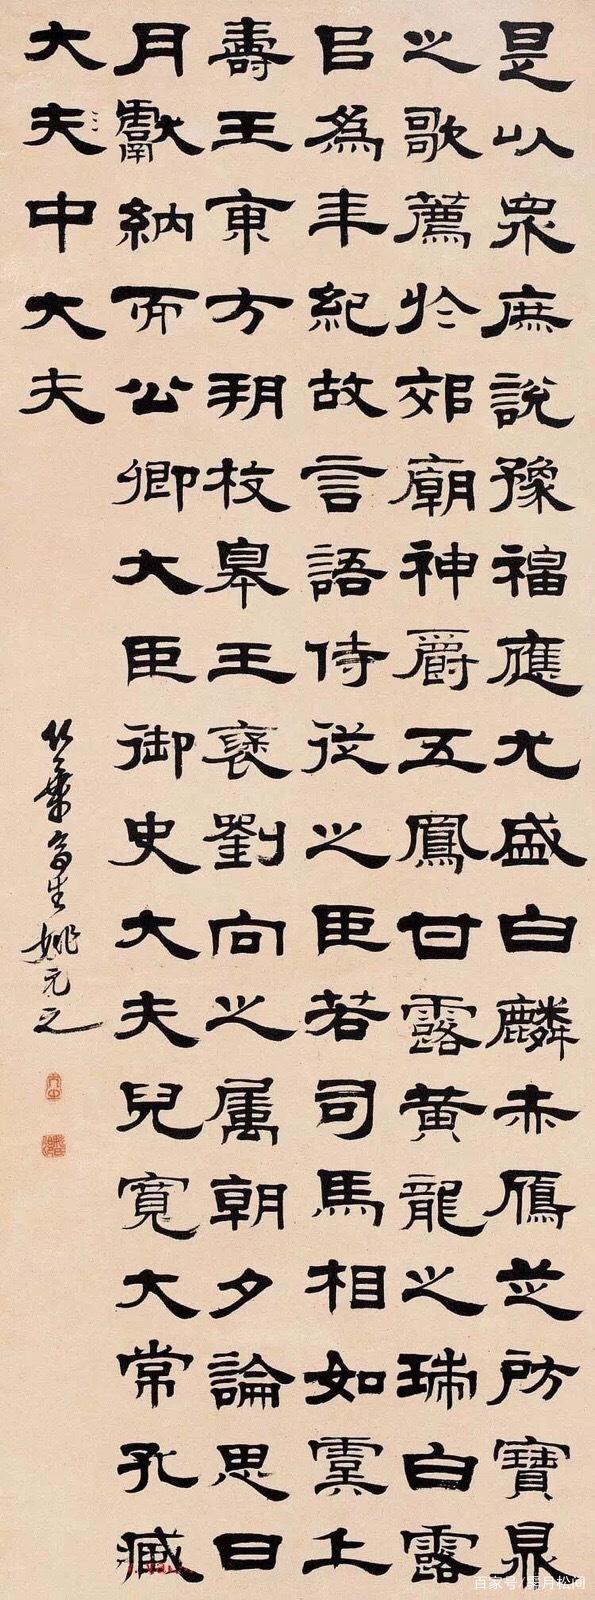 是以眾庶說豫福應尤盛白麟赤鴈芝房寶鼎
之歌薦於郊廟神爵五鳳甘露黃龍之瑞白露
㠯為年紀故言語侍從之臣若司馬相如虞丘
壽王東方朔枚皋王褒劉向之属朝夕論思日
月獻納而公卿大臣御史大夫兒寬大常孔臧
大夫中大夫
竹葉亭生姚元之
百家号/霁月松间